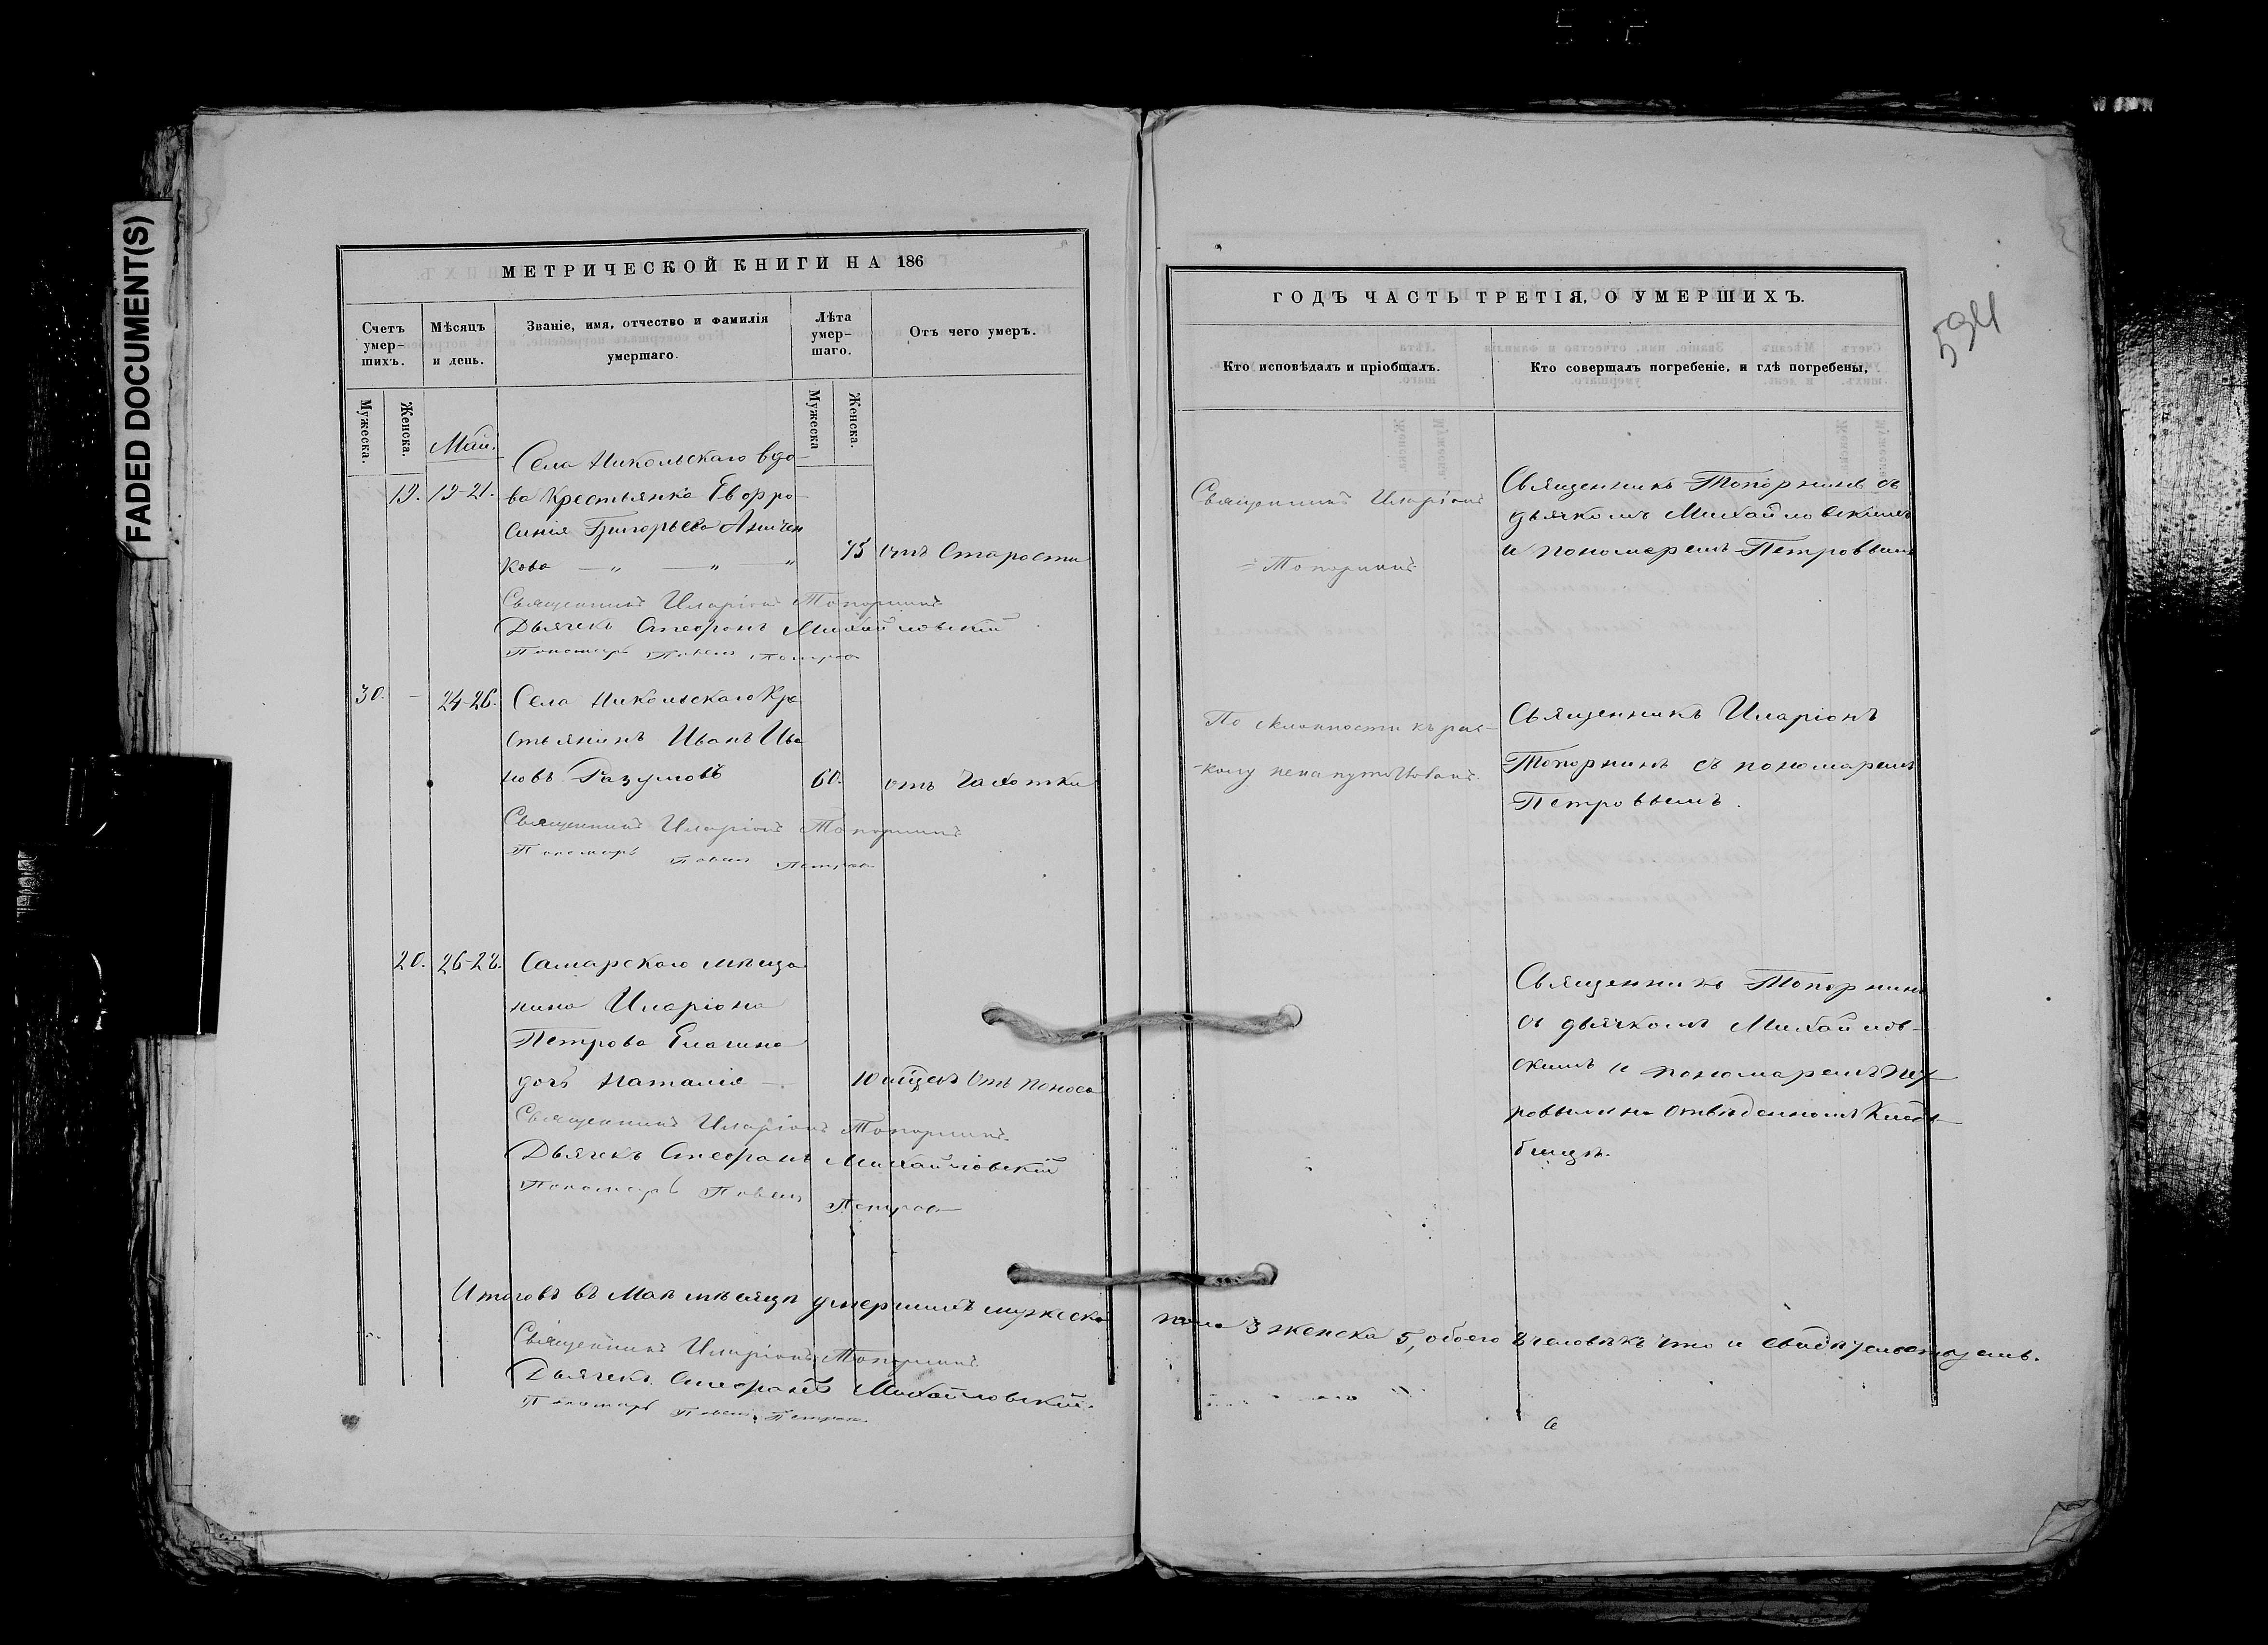 FADED DOCUMENT(S)
МЕТРИЧЕСКОЙ КНИГИ НА 186
Счетъ умер-шихъ.
Мѣсяцъ и день.
Званіе, имя, отчество и фамилія умершаго.
Лѣта умер-шаго.
Отъ чего умеръ.
Мужеска.
Женска.
Мужеска
Женска.
Май.
Села Никольскаго вдо-
19. 19-21. ва Крестьянка Евфро-
синія Григорьева Аничен
кова — „ — „ — „ 75 отъ Старости
Священникъ Иларіонъ Топорнинъ
Дьячекъ Стефанъ Михайловскій
Пономарь Павелъ Петровъ
30. - 24-26. Села Никольскаго Кре
стьянинъ Иванъ Ива
новъ Разумовъ 60. отъ Чахотки
Священникъ Иларіонъ Топорнинъ
Пономарь Павелъ Петровъ
20. 26-28. Самарскаго мѣща
нина Иларіона
Петрова Елагина
дочь Наталія — 10 мѣсец Отъ поноса
Священникъ Иларіонъ Топорнинъ.
Дьячекъ Стефанъ Михайловскій
Пономарь Павелъ Петровъ
Итого въ Маѣ мѣсяцѣ умершихъ мужеска
Священникъ Иларіонъ Топорнинъ
Дьячекъ Стефанъ Михайловскій.
Пономарь Павелъ Петровъ.
594
ГОДЪ ЧАСТЬ ТРЕТІЯ, О УМЕРШИХЪ.
Кто исповѣдалъ и пріобщалъ.
Кто совершалъ погребеніе, и гдѣ погребены,
Священникъ Иларіонъ
= Топорнинъ
Священникъ Топорнинъ съ
дьячкомъ Михайловскимъ
и пономаремъ Петровымъ
По склонности къ рас-
-колу не напутствованъ.
Священникъ Иларіонъ
Топорнинъ съ пономаремъ
Петровымъ.
Священникъ Топорнинъ
съ дьячкомъ Михайлов-
скимъ и пономаремъ Пет
ровымъ на отведенномъ Клад-
бищѣ.
пола 3 женска 5, обоего 8 человѣкъ что и свидѣтельствуемъ.